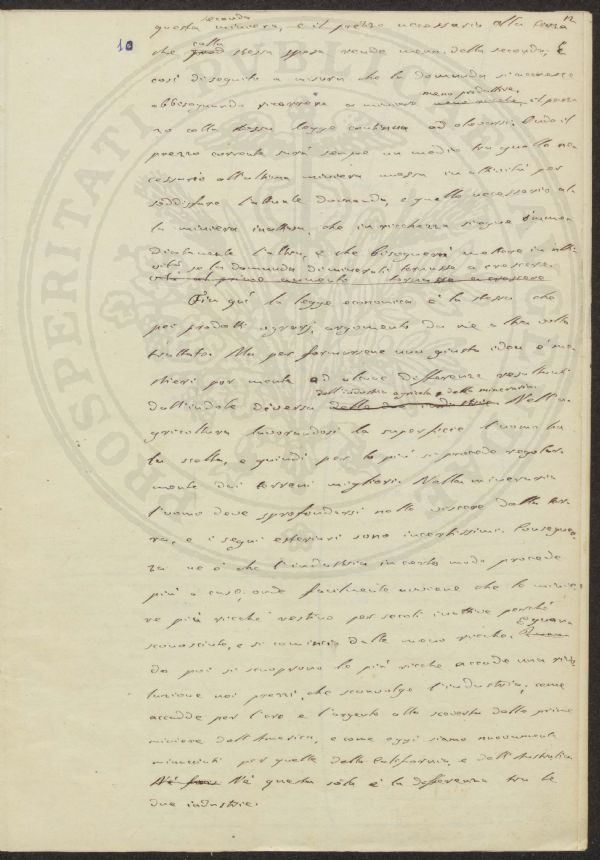 12
10
seconda
questa miniera, e il prezzo necessario alla terza
colla
che stessa spesa rende meno della seconda; E
così di seguito a misura che la domanda si accresce
meno produttive,
abbisognando ricorrere a miniere meno ricche, il prez
zo colla stessa legge continua ad elevarsi. Onde il
prezzo corrente sarà sempre un medio tra quello ne
cessario all'ultima miniera messa in attività per
soddisfare l'attuale domanda, e quello necessario al
la miniera inattiva, che in ricchezza siegue immme
diatamente l'altra, e che bisognerà mettere in atti
vità, se la domanda di minerali tornasse a crescere.
vità al primo aumento tornasse a crescere
Fin quì la legge economica è la stessa che
pei prodotti agrarj, argomento da me altra volta
trattato. Ma per formarsene una giusta idea è me
stieri por mente ad alcune differenze resultanti
dall'industria agricola e della mineraria.
dall'indole diversa delle due industrie. Nell'a
gricoltura lavorandosi la superficie l'uomo ha
la scelta, e quindi per lo più si procede regolar
mente dai terreni migliori. Nella mineraria
l'uomo deve sprofondarsi nelle viscere della ter
ra, e i segni esteriori sono incertissimi. Conseguen
za ne è che l'industria in certo modo procede
più a caso; onde facilmente avviene che le minie
re più ricche restino per secoli inattive perchè
E quan
sconosciute, e si comincia dalle meno ricche. Quan
do poi si scuoprono le più ricche accade una rivo
luzione nei prezzi, che sconvolge l'industria; come
accadde per l'oro e l'argento alla scoverta delle prime
miniere dell'America, e come oggi siamo nuovamente
minacciati per quelle della California, e dell'Australia.
Nè questa sola è la differenza tra le
due industrie.